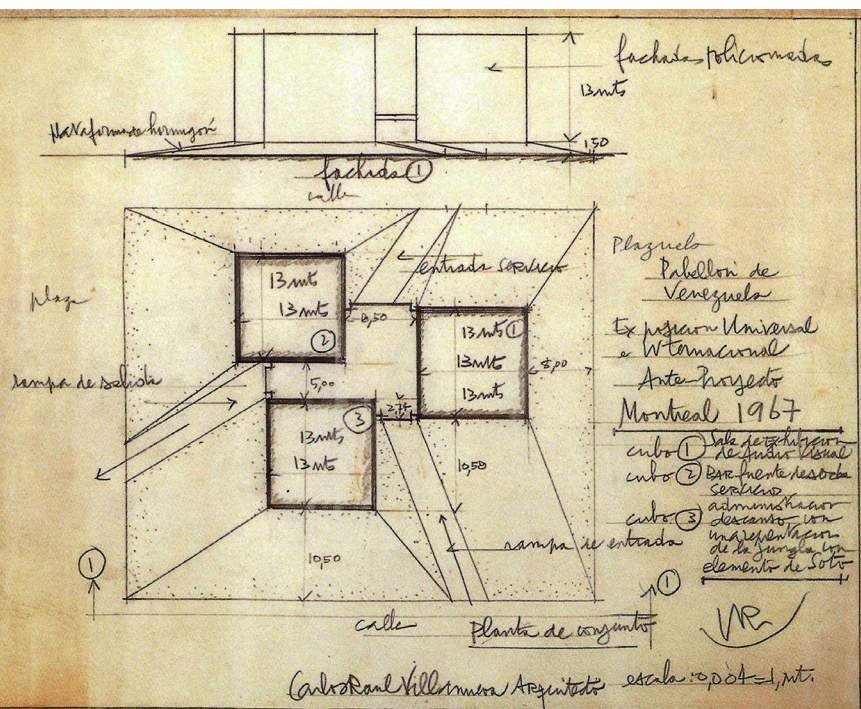 fachadas policromadas
13 mts
1,50
plataforma de hormigón
fachada ①
calle
entrada SERVICIO
13 mts
13 mts
②
plaza
8,50
13 mts ①
13 mts
13 mts
8,00
rampa de salida
5,00
2,75
③
13 mts
13 mts
10,50
10,50
rampa de entrada
①
①
calle
Planta de conjunto
Plazuela
Pabellon de
Venezuela
Exposicion Universal
e Internacional
Ante-Proyecto
Montreal 1967
cubo ① Sala de Exhibicion
de Audio Visual
cubo ② BAR fuente de SODA
SERVICIOS
cubo ③ administracion
descanso, con
una
de la jungla con
elemento de Soto
VR
Carlos Raul Villanueva Arquitecto
escala: 0,004 = 1, mt.